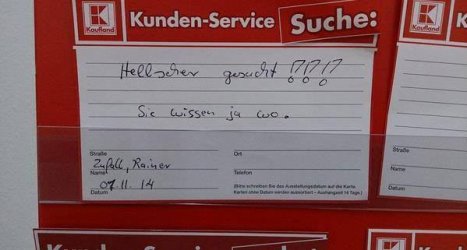 K
Kaufland
Kunden-Service Suche:
Hellseher gesucht !?!?!?
Sie wissen ja wo.
Straße
Ort
Zufall, Rainer
Name
Telefon
07.11.14
Datum
(Bitte schreiben Sie das Ausstellungsdatum auf die Karte.
Karten ohne Datum werden aussortiert – Aushangzeit 14 Tage.)
K
Kaufland
Kunden-Service